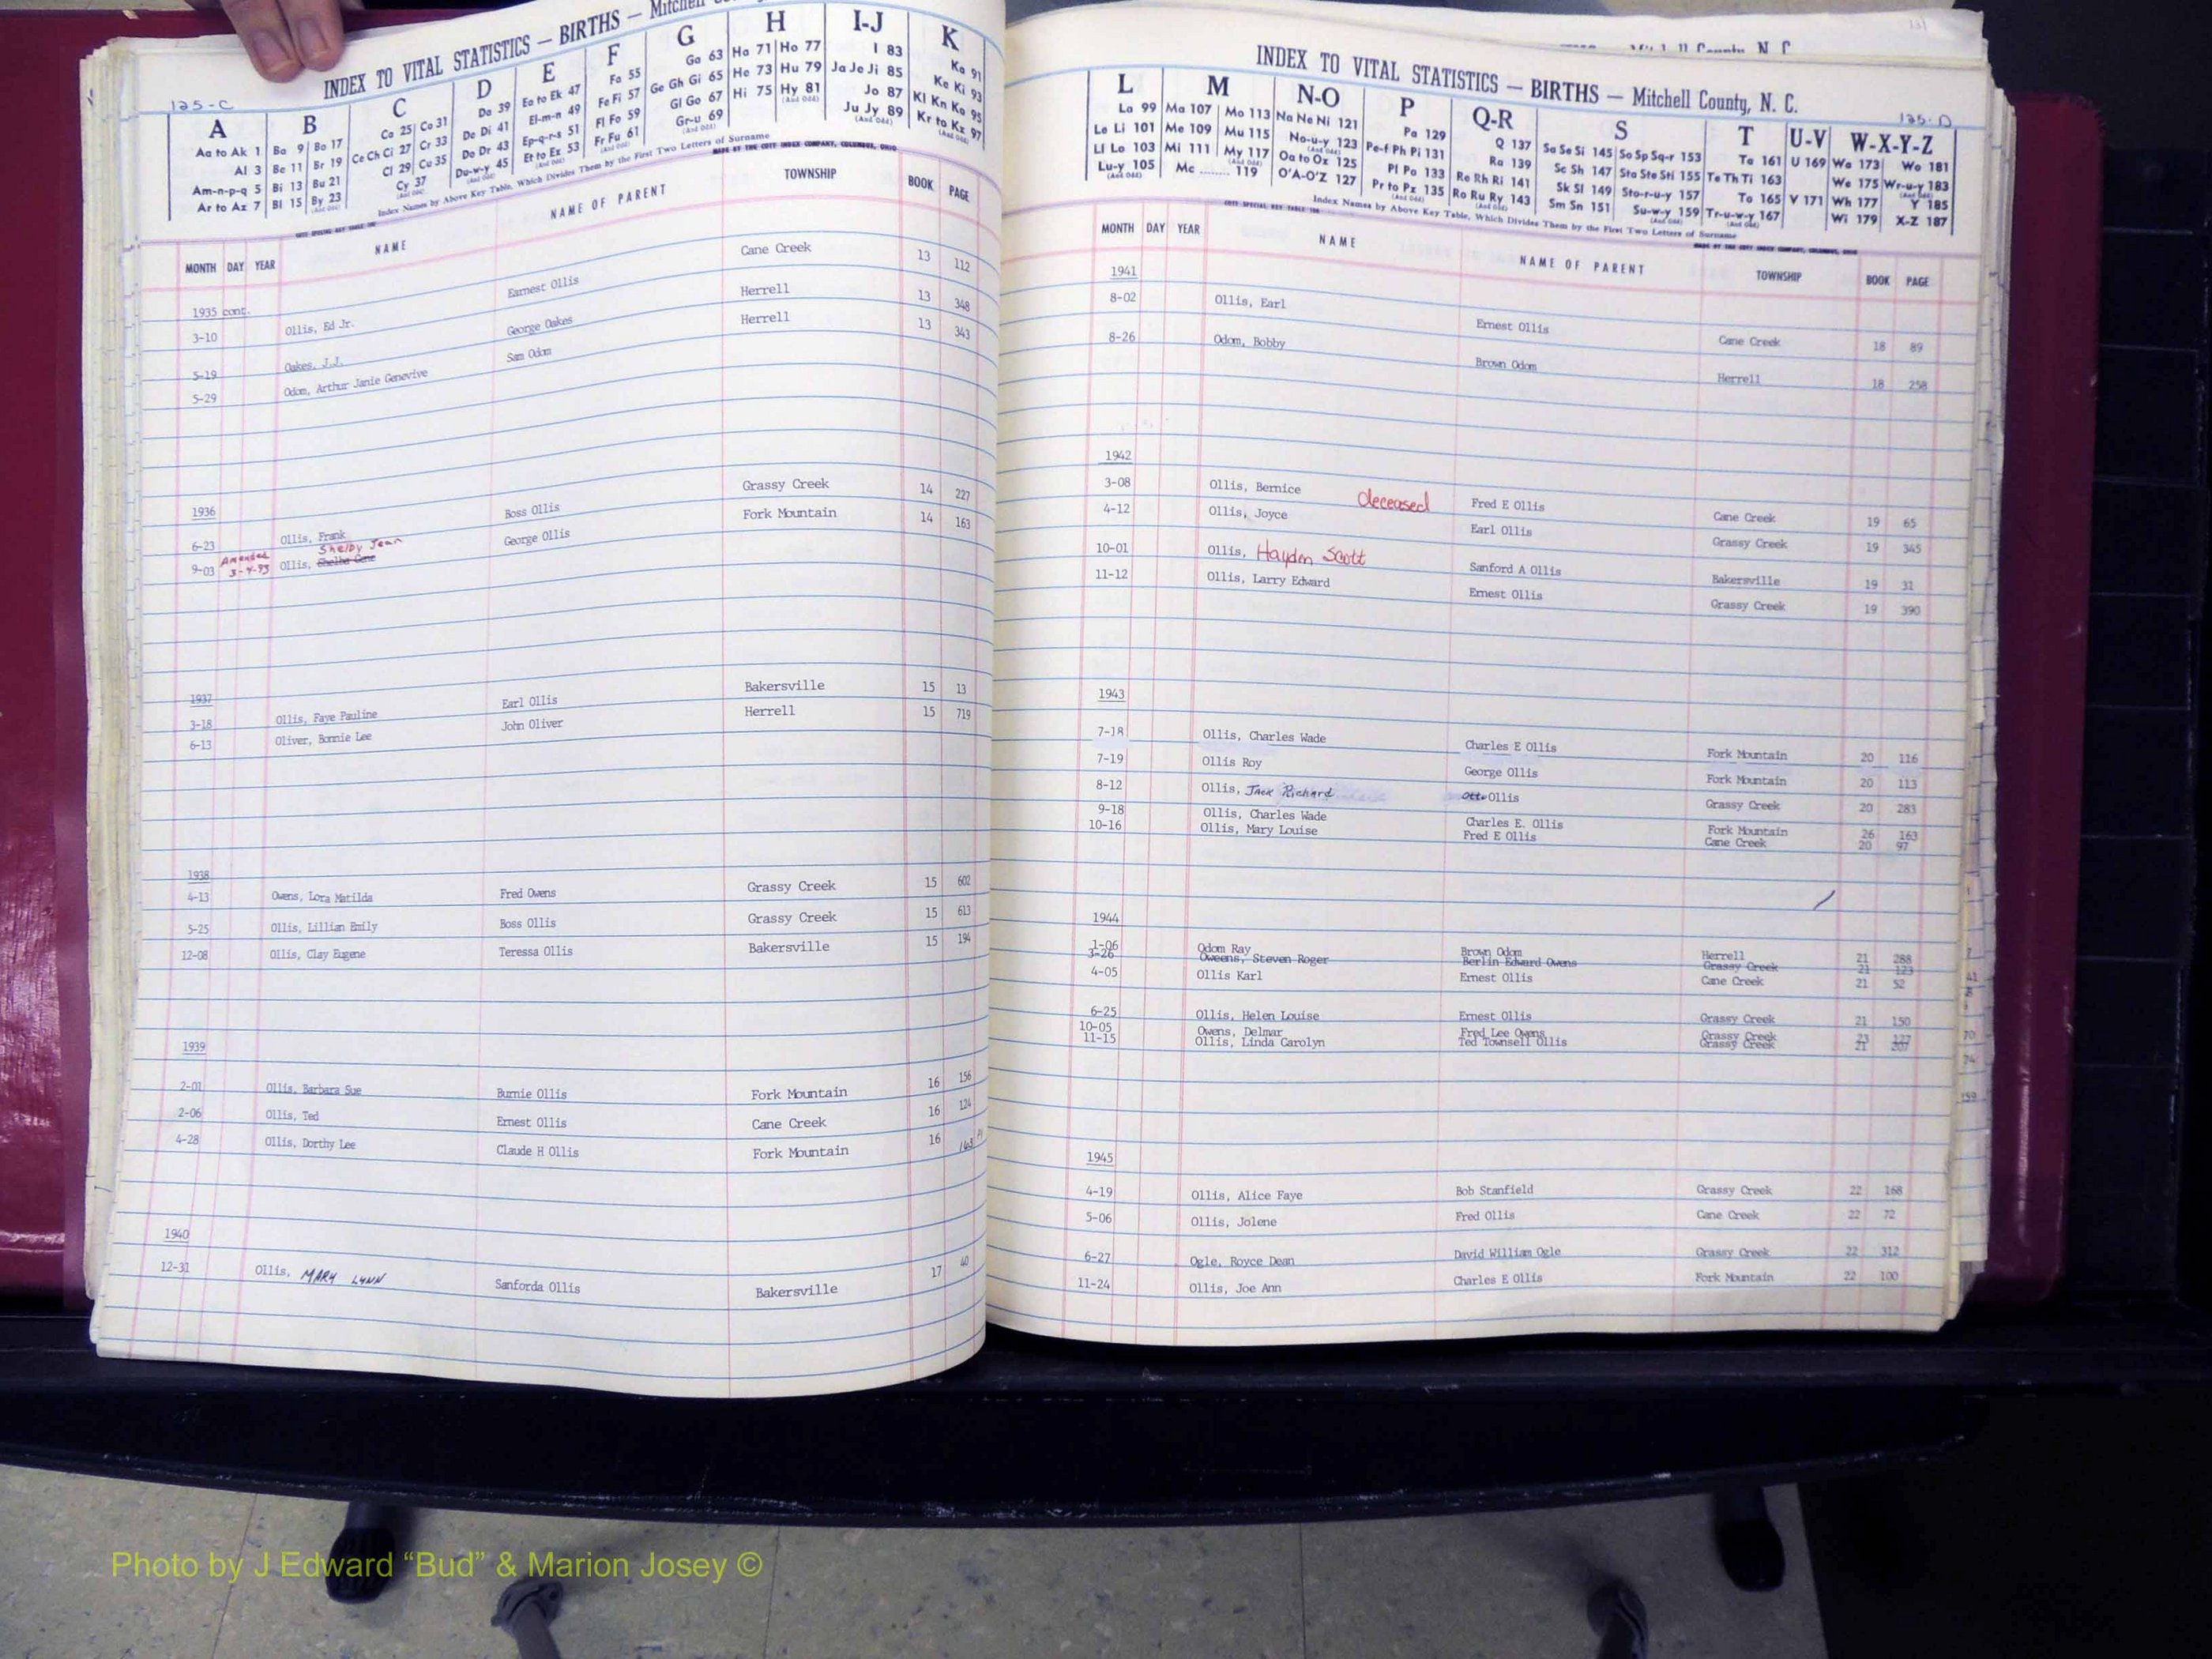 INDEX TO VITAL STATISTICS — BIRTHS — Mitchell
125-C
A B C D E F G H I-J K
Aa to Ak 1 Ba 9 Bo 17 Ca 25 Co 31 Da 39 Ea to Ek 47 Fa 55 Ga 63 Ha 71 Ho 77 I 83 Ka 91
Al 3 Be 11 Br 19 Ce Ch Ci 27 Cr 33 De Di 41 El-m-n 49 Fe Fi 57 Ge Gh Gi 65 He 73 Hu 79 Ja Je Ji 85 Ke Ki 93
Am-n-p-q 5 Bi 13 Bu 21 Cl 29 Cu 35 Do Dr 43 Ep-q-r-s 51 Fl Fo 59 Gl Go 67 Hi 75 Hy 81 Jo 87 Kl Kn Ko 95
Ar to Az 7 Bl 15 By 23 Cy 37 Du-w-y 45 Et to Ez 53 Fr Fu 61 Gr-u 69 Ju Jy 89 Kr to Kz 97
Index Names by Above Key Table, Which Divides Them by the First Two Letters of Surname
MADE BY THE COTT INDEX COMPANY, COLUMBUS, OHIO
MONTH DAY YEAR NAME NAME OF PARENT TOWNSHIP BOOK PAGE
1935 cont.
3-10 Ollis, Ed Jr. Earnest Ollis Cane Creek 13 112
5-19 Oakes, J.J. George Oakes Herrell 13 348
5-29 Odom, Arthur Janie Genevive Sam Odom Herrell 13 343
1936
6-23 Ollis, Frank Boss Ollis Grassy Creek 14 227
Amended Shelby Jean
9-03 3-4-93 Ollis, Shelba Gene George Ollis Fork Mountain 14 163
1937
3-18 Ollis, Faye Pauline Earl Ollis Bakersville 15 13
6-13 Oliver, Bonnie Lee John Oliver Herrell 15 719
1938
4-13 Owens, Lora Matilda Fred Owens Grassy Creek 15 602
5-25 Ollis, Lillian Emily Boss Ollis Grassy Creek 15 613
12-08 Ollis, Clay Eugene Teressa Ollis Bakersville 15 194
1939
2-01 Ollis, Barbara Sue Burnie Ollis Fork Mountain 16 156
2-06 Ollis, Ted Ernest Ollis Cane Creek 16 124
4-28 Ollis, Dorthy Lee Claude H Ollis Fork Mountain 16 163
1940
12-31 Ollis, MARY LYNN Sanforda Ollis Bakersville 17 40
INDEX TO VITAL STATISTICS — BIRTHS — Mitchell County, N. C.
125-D
L M N-O P Q-R S T U-V W-X-Y-Z
La 99 Ma 107 Mo 113 Na Ne Ni 121 Pa 129 Q 137 Sa Se Si 145 So Sp Sq-r 153 Ta 161 U 169 Wa 173 Wo 181
Le Li 101 Me 109 Mu 115 No-u-y 123 Pe-f Ph Pi 131 Ra 139 Sc Sh 147 Sta Ste Sti 155 Te Th Ti 163 We 175 Wr-u-y 183
Ll Lo 103 Mi 111 My 117 Oa to Oz 125 Pl Po 133 Re Rh Ri 141 Sk Sl 149 Sto-r-u-y 157 To 165 V 171 Wh 177 Y 185
Lu-y 105 Mc ........ 119 O'A-O'Z 127 Pr to Pz 135 Ro Ru Ry 143 Sm Sn 151 Su-w-y 159 Tr-u-w-y 167 Wi 179 X-Z 187
Index Names by Above Key Table, Which Divides Them by the First Two Letters of Surname
MADE BY THE COTT INDEX COMPANY, COLUMBUS, OHIO
MONTH DAY YEAR NAME NAME OF PARENT TOWNSHIP BOOK PAGE
1941
8-02 Ollis, Earl Ernest Ollis Cane Creek 18 89
8-26 Odom, Bobby Brown Odom Herrell 18 258
1942
3-08 Ollis, Bernice deceased Fred E Ollis Cane Creek 19 65
4-12 Ollis, Joyce Earl Ollis Grassy Creek 19 345
10-01 Ollis, Hayden Scott Sanford A Ollis Bakersville 19 31
11-12 Ollis, Larry Edward Ernest Ollis Grassy Creek 19 390
1943
7-18 Ollis, Charles Wade Charles E Ollis Fork Mountain 20 116
7-19 Ollis Roy George Ollis Fork Mountain 20 113
8-12 Ollis, Jack Richard Otto Ollis Grassy Creek 20 283
9-18 Ollis, Charles Wade Charles E. Ollis Fork Mountain 26 163
10-16 Ollis, Mary Louise Fred E Ollis Cane Creek 20 97
1944
1-06 Odom Ray Brown Odom Herrell 21 288
3-26 Oweens, Steven Roger Berlin Edward Owens Grassy Creek 21 123
4-05 Ollis Karl Ernest Ollis Cane Creek 21 52
6-25 Ollis, Helen Louise Ernest Ollis Grassy Creek 21 150
10-05 Owens, Delmar Fred Lee Owens Grassy Creek 23 127
11-15 Ollis, Linda Carolyn Ted Townsell Ollis Grassy Creek 21 207
1945
4-19 Ollis, Alice Faye Bob Stanfield Grassy Creek 22 168
5-06 Ollis, Jolene Fred Ollis Cane Creek 22 72
6-27 Ogle, Royce Dean David William Ogle Grassy Creek 22 312
11-24 Ollis, Joe Ann Charles E Ollis Fork Mountain 22 100
Photo by J Edward “Bud” & Marion Josey ©